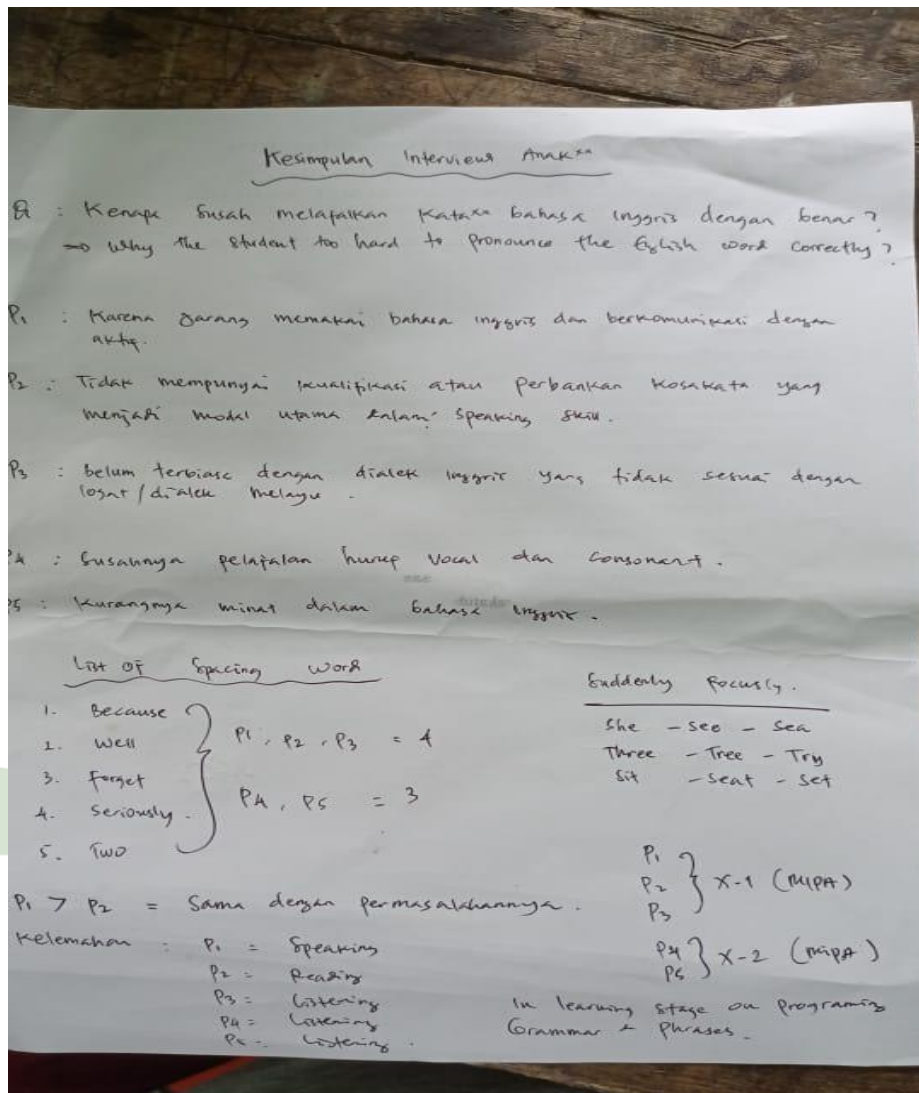 Kesimpulan Interview Anak²ⁿ
Q : Kenapa Susah melafalkan Kata²ⁿ bahasa Inggris dengan benar ?
⇒ Why the student too hard to pronounce the English word correctly ?
P1 : Karena Jarang memakai bahasa inggris dan berkomunikasi dengan
aktif.
P2 : Tidak mempunyai kualifikasi atau Perbankan Kosakata yang
menjadi modal utama dalam Speaking Skill.
P3 : belum terbiasa dengan dialek Inggris yang tidak sesuai dengan
logat / dialek melayu.
P4 : Susahnya pelafalan huruf Vocal dan Consonant.
P5 : Kurangnya minat dalam bahasa Inggris.
List of Spacing Word
1. Because
2. Well
3. Forget
4. Seriously.
5. Two
P1, P2, P3 = 4
P4, P5 = 3
Suddenly Focusly.
She - See - Sea
Three - Tree - Try
Sit - Seat - Set
P1
P2
P3
X-1 (MIPA)
P4
P5
X-2 (MIPA)
P1 > P2 = Sama dengan permasalahannya.
Kelemahan : P1 = Speaking
P2 = Reading
P3 = Listening
P4 = Listening
P5 = Listening.
In learning stage on Programing
Grammar & Phrases.